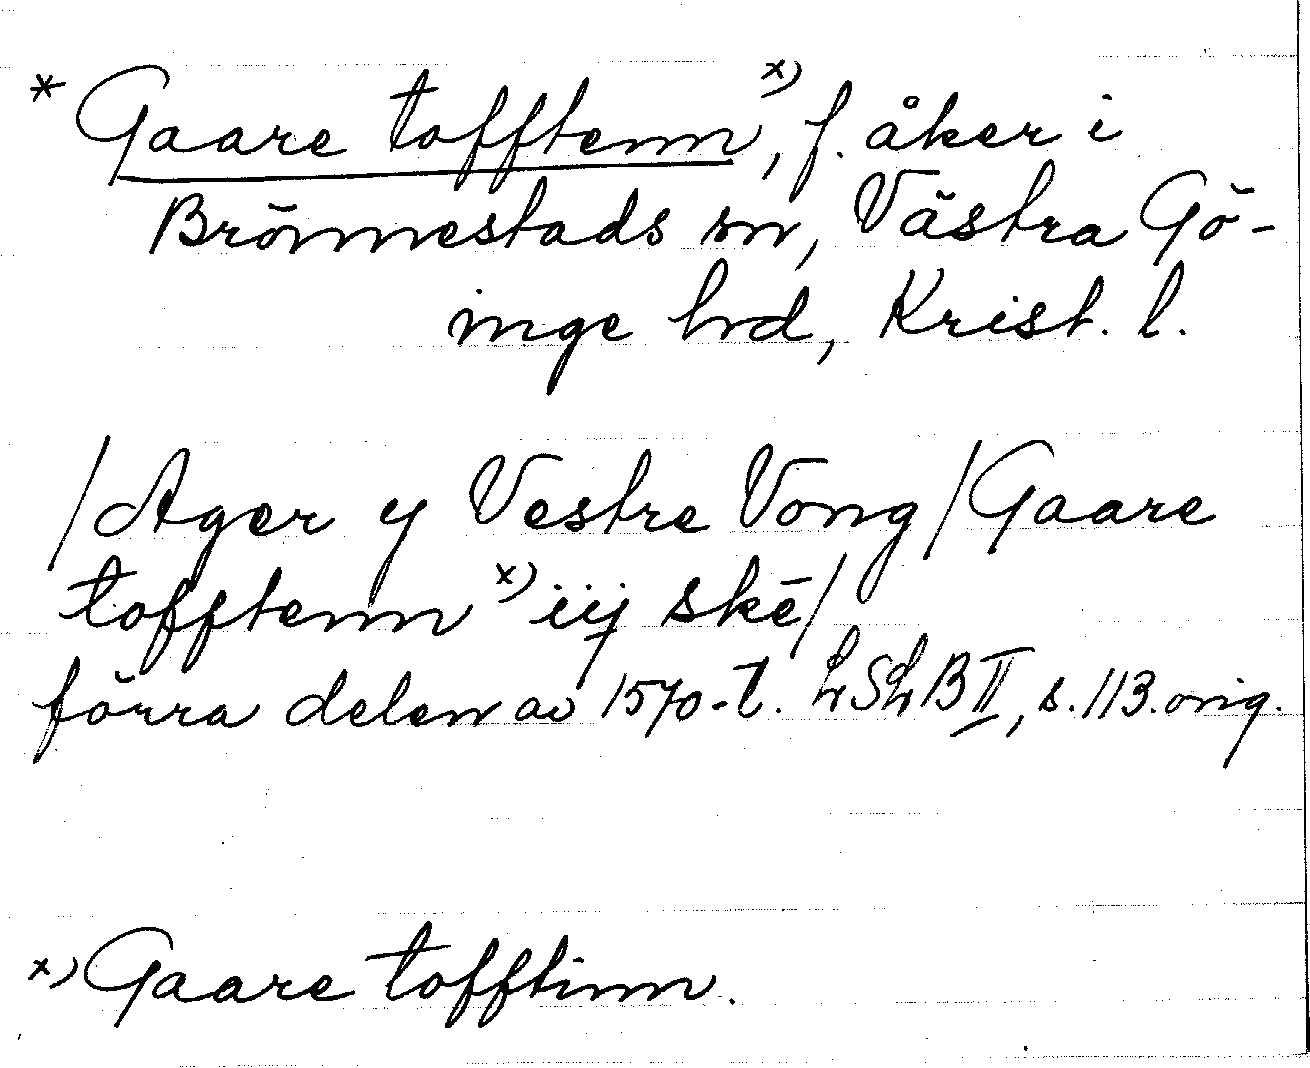 * Gaare tofftenn x), f. åker i
Brönnestads sn, Västra Gö-
inge hrd, Krist. l.
/Ager y Vestre Vong/Gaare
tofftenn x) iij skē/
förra delen av 1570-t. LShB II, s. 113. orig.
x) Gaare tofftinn.